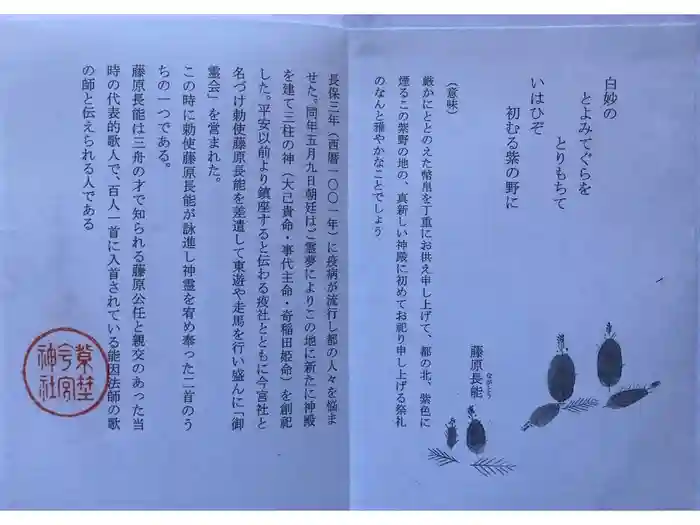 白妙の
とよみてぐらを
とりもちて
いはひぞ
初むる紫の野に
(意味)
厳かにととのえた幣帛を丁重にお供え申し上げて、都の北、紫色に
煙るこの紫野の地の、真新しい神殿に初めてお祀り申し上げる祭礼
のなんと雅やかなことでしょう
藤原長能
ながとう
長保三年(西暦一〇〇一年)に疫病が流行し都の人々を悩ま
せた。同年五月九日朝廷はご霊夢によりこの地に新たに神殿
を建て三柱の神(大己貴命・事代主命・奇稲田姫命)を創祀
した。平安以前より鎮座すると伝わる疫社とともに今宮社と
名づけ勅使藤原長能を差遣して東遊や走馬を行い盛んに「御
霊会」を営まれた。
この時に勅使藤原長能が詠進し神霊を宥め奉った二首のう
ちの一つである。
藤原長能は三舟の才で知られる藤原公任と親交のあった当
時の代表的歌人で、百人一首に入首されている能因法師の歌
の師と伝えられる人である
紫野
今宮
神社